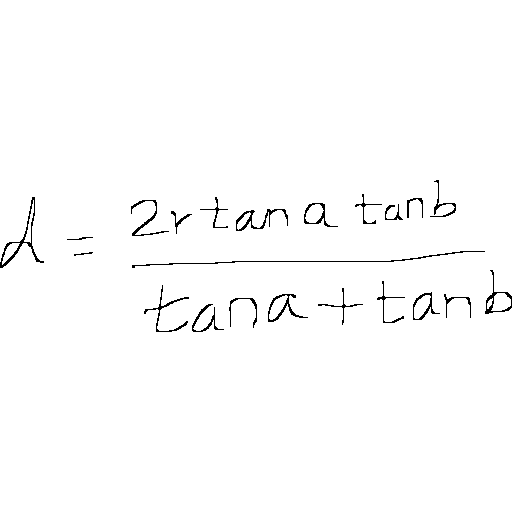 d = \frac{2r \tan a \tan b}{\tan a + \tan b}